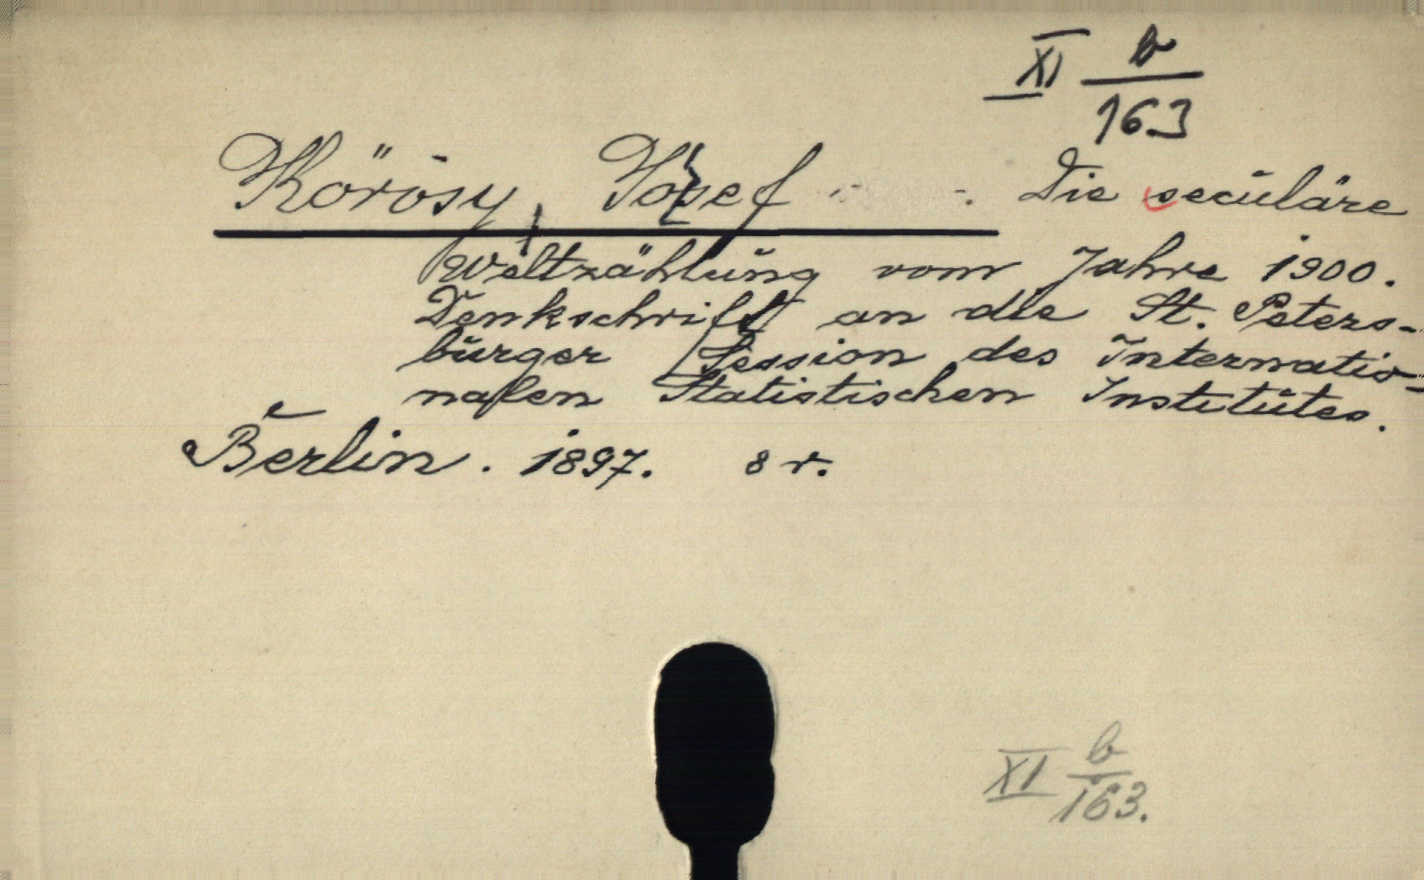 XI b/163
Körösy, József Die seculäre
Weltzählung vom Jahre 1900.
Denkschrift an die St. Peters-
burger Session des Internatio-
nalen Statistischen Institutes.
Berlin. 1897. 8 r.
XI b/163.